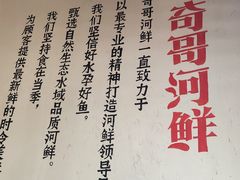 奇哥河鲜
奇哥河鲜一直致力于
以最专业的精神打造河鲜领导
我们坚信好水孕好鱼。
甄选自然生态水域品质河鲜。
我们坚持食在当季，
为顾客提供最新鲜的时令美